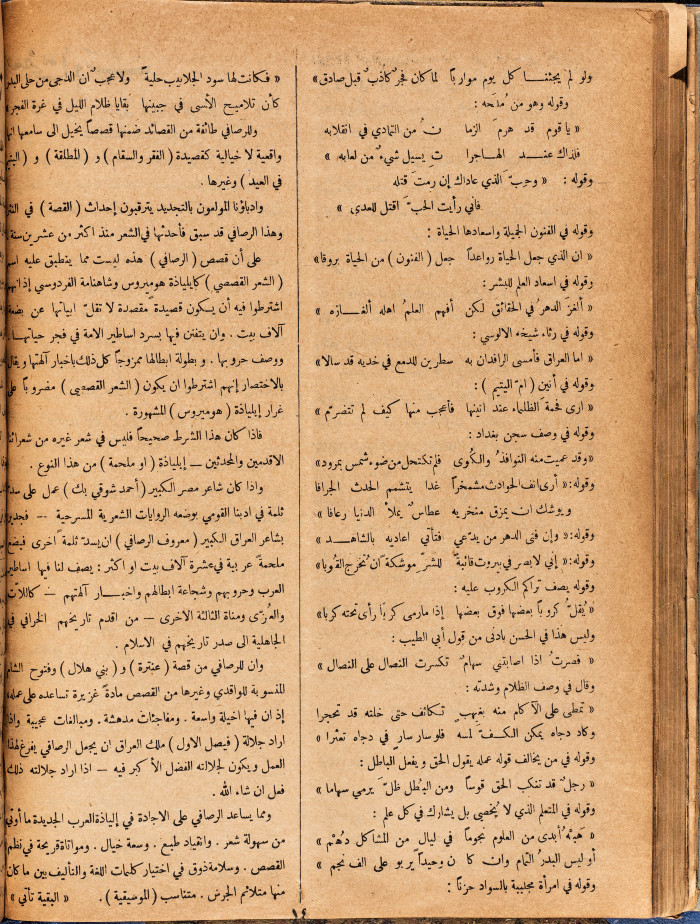 ولو لم يجئنا كل يوم مواربا لما كان فجرٌ كاذبٌ قبل صادق »
وقوله وهو من مُلَحه :
« يا قوم قد هرم الزما نُ من التمادي في انقلابه
فلذاك عند الهاجرا تِ يسيل شيءٌ من لعابه »
وقوله : « وحِبّ الذي عاداك إن رمتَ قتله
فاني رأيت الحبّ اقتل للعدى »
وقوله في الفنون الجميلة واسعادها الحياة :
« ان الذي جعل الحياة رواعداً جعل ( الفنون ) من الحياة بروقا »
وقوله في اسعاد العلم للبشر :
« ألغزَ الدهرُ في الحقائق لكن أفهم العلمُ اهله ألغازه »
وقوله في رثاء شيخه الالوسي :
« اما العراق فأمسى الرافدان به سطرين للدمع في خديه قد سالا »
وقوله في أنين ( ام اليتيم ) :
« ارى فحمة الظلماء عند انينها فأعجب منها كيف لم تتضرّم »
وقوله في وصف سجن بغداد :
« وقد عميت منه النوافذُ والكُوى فلم تكتحل من ضوء شمس بمرود »
وقوله: « أرى انف الحوادث مشمخراً غدا يتشمم الحدث الجرافا
ويوشك ان يمزق منخريه عطاسٌ يملأُ الدنيا رعافا »
وقوله: « وإن فتى الدهر من يدّعي فتأتي اعاديه بالشاهد »
وقوله: « إني لابصر في بيروت قائبةً للشرّ موشكةً ان تُخرج القُوبا »
وقوله يصف تراكم الكروب عليه :
« يُقلّ كروباً بعضها فوق بعضها إذا مارمى كرباً رأى تحته كربا »
وليس هذا في الحسن بادنى من قول أبي الطيب :
« فصرتُ اذا اصابتني سهامٌ تكسرت النصال على النصال »
وقال في وصف الظلام وشدّته :
« تمطى على الآكام منه بغيهب تكاثف حتى خلته قد تحجرا
وكاد دجاه يمكن الكفّ لمسه فلو سار سارٍ في دجاه تعثرا »
وقوله في من يخالف قوله عمله يقول الحق ويفعل الباطل :
« رجلٌ قد تنكب الحق قوساً ومن البُطل ظلّ يرمي سهاما »
وقوله في المتعلم الذي لا يُخصى بل يشارك في كل علم :
« هَبهُ أبدى من العلوم نجوماً في ليال من المشاكل دُهْم
أو ليس البدرُ التمام وان كا ن وحيداً يربو على الف نجم »
وقوله في امرأة مجلببة بالسواد حزناً :
« فكانت لها سود الجلابيب حليةً ولاعجبٌ ان الدجى من حلى البدر
كأن تلاميح الأسى في جبينها بقايا ظلام الليل في غرة الفجر »
وللرصافي طائفة من القصائد ضمنها قصصاً يخيل الى سامعها انها
واقعية لا خيالية كقصيدة ( الفقر والسقام ) و ( المطلقة ) و ( اليتيم
في العيد ) وغيرها .
وادباؤنا المولعون بالتجديد يترقبون إحداث ( القصة ) في النثر
وهذا الرصافي قد سبق فأحدثها في الشعر منذ اكثر من عشرين سنة .
على أن قصص ( الرصافي ) هذه ليست مما ينطبق عليه اسم
( الشعر القصصي ) كإيلياذة هوميروس وشاهنامة الفردوسي إذ انهم
اشترطوا فيه أن يكون قصيدةً مقصدة لا تقلّ ابياتها عن بضعة
آلاف بيت . وان يتفنن فيها بسرد اساطير الامة في فجر حياتها .
ووصف حروبها . و بطولة ابطالها ممزوجاً كل ذلك باخبار آلهتها ويقال
بالاختصار إنهم اشترطوا ان يكون ( الشعر القصصي ) مضروباً على
غرار إيلياذة ( هوميروس ) المشهورة .
فاذا كان هذا الشرط صحيحاً فليس في شعر غيره من شعرائنا
الاقدمين والمحدثين — إيلياذة ( او ملحمة ) من هذا النوع .
واذا كان شاعر مصر الكبير ( أحمد شوقي بك ) عمل على سدّ
ثلمة في ادبنا القومي بوضعه الروايات الشعرية المسرحية — فجدير
بشاعر العراق الكبير ( معروف الرصافي ) ان يسدّ ثلمةً اخرى فيضع
ملحمة عربية في عشرة آلاف بيت او اكثر : يصف لنا فيها اساطير
العرب وحروبهم وشجاعة ابطالهم واخبار آلهتهم — كاللات
والعُزّى ومناة الثالثة الاخرى — من اقدم تاريخهم الخرافي في
الجاهلية الى صدر تاريخهم في الاسلام .
وان للرصافي من قصة ( عنترة ) و ( بني هلال ) وفتوح الشام
المنسوبة للواقدي وغيرها من القصص مادةً غزيرة تساعده على عمله
إذ ان فيها اخيلة واسعة . ومفاجئات مدهشة . ومبالغات عجيبة واذا
اراد جلالة ( فيصل الاول ) ملك العراق ان يجعل الرصافي يفرغ لهذا
العمل ويكون لجلالته الفضل الأكبر فيه — اذا اراد جلالته ذلك
فعل ان شاء الله .
ومما يساعد الرصافي على الاجادة في إلياذة العرب الجديدة ما أوتي
من سهولة شعر . وانقياد طبع . وسعة خيال . ومواتاة قريحة في نظم
القصص . وسلامة ذوق في اختيار كلمات اللغة والتأليف بين ما كان
منها متلائم الجرس . متناسب ( الموسيقية ) . « البقية تأتي »
١٤